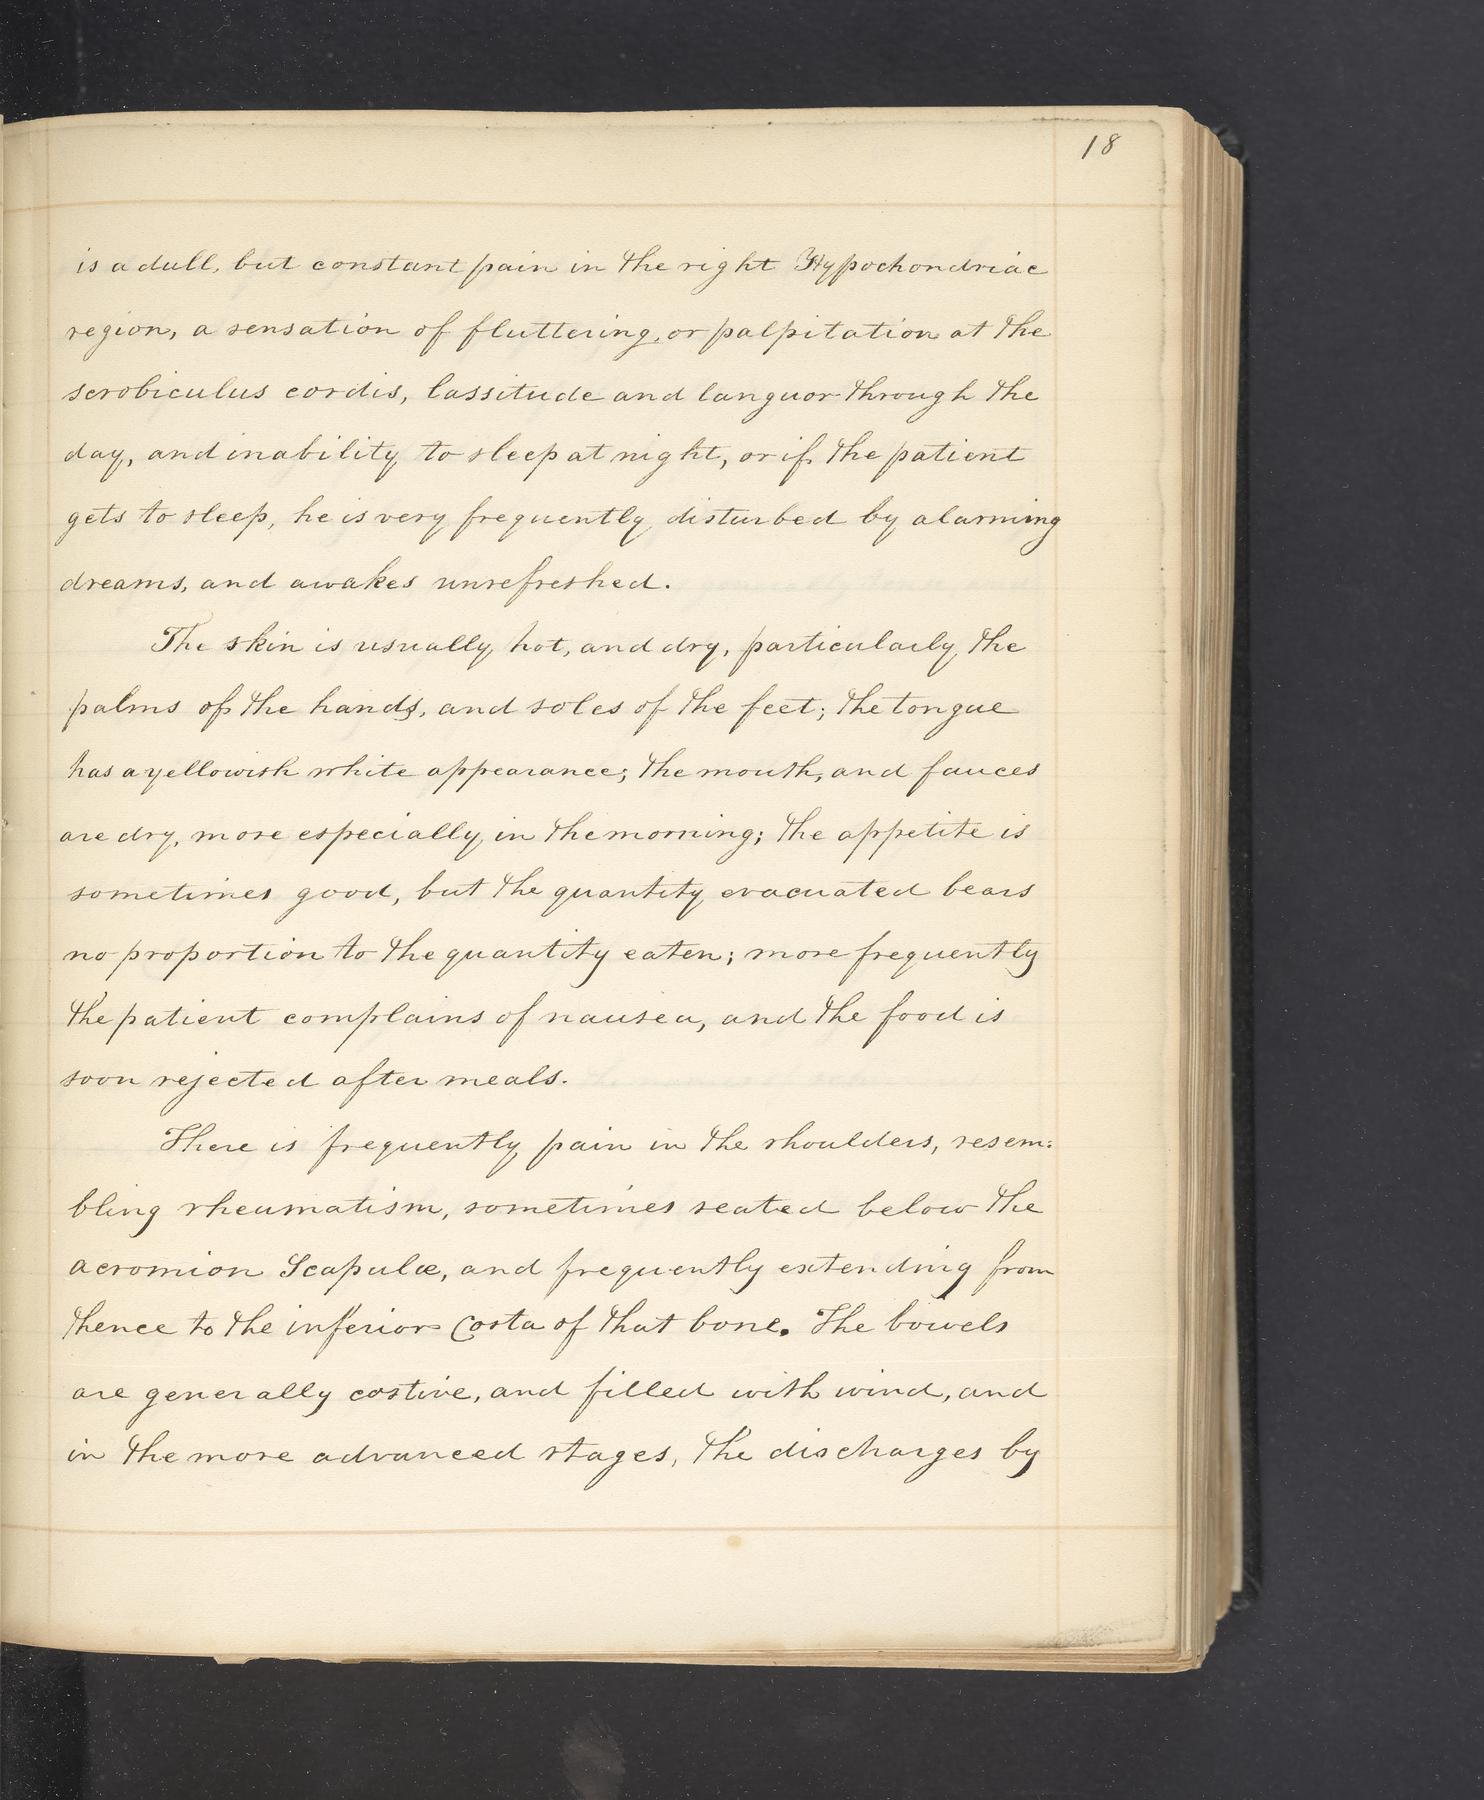 18
is a dull, but constant pain in the right Hypochondriac
region, a sensation of fluttering, or palpitation at the
scrobiculus cordis, lassitude and languor through the
day, and inability to sleep at night, or if the patient
gets to sleep, he is very frequently disturbed by alarming
dreams, and awakes unrefreshed.
The skin is usually hot, and dry, particularly the
palms of the hands, and soles of the feet; the tongue
has a yellowish white appearance; the mouth, and fauces
are dry, more especially in the morning; the appetite is
sometimes good, but the quantity evacuated bears
no proportion to the quantity eaten; more frequently
the patient complains of nausea, and the food is
soon rejected after meals.
There is frequently pain in the shoulders, resem:
bling rheumatism, sometimes seated below the
acromion Scapulæ, and frequently extending from
thence to the inferior Costa of that bone. The bowels
are generally costive, and filled with wind, and
in the more advanced stages, the discharges by